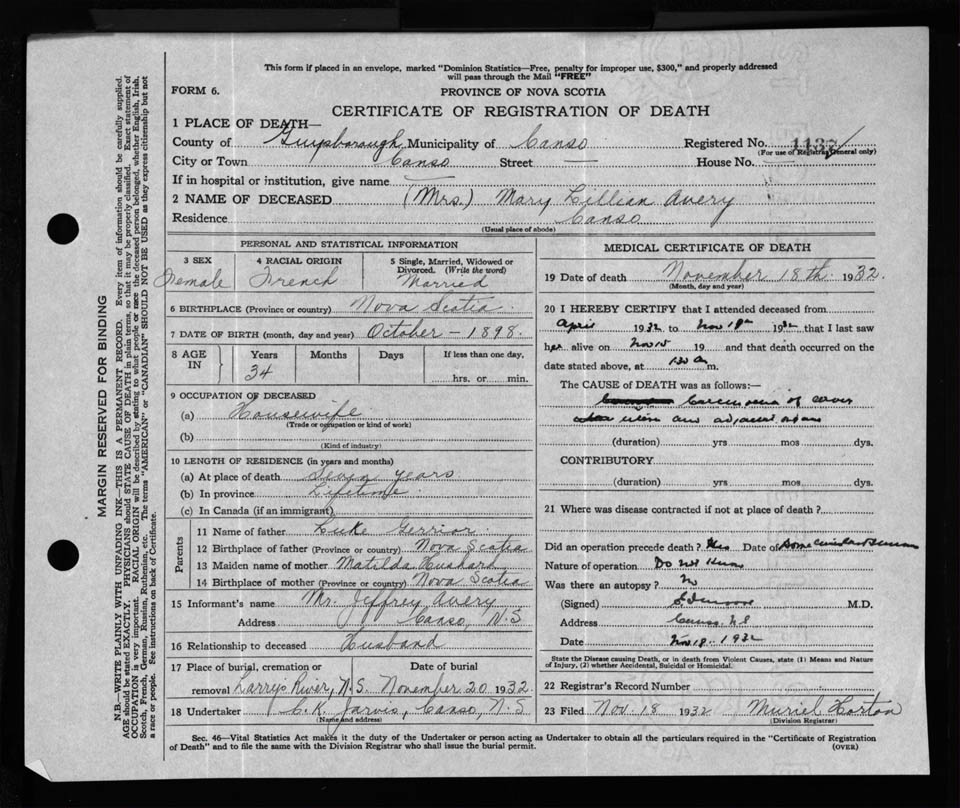 This form if placed in an envelope, marked "Dominion Statistics—Free, penalty for improper use, $300," and properly addressed
will pass through the Mail "FREE"
FORM 6.
PROVINCE OF NOVA SCOTIA
CERTIFICATE OF REGISTRATION OF DEATH
1 PLACE OF DEATH—
County of Guysborough Municipality of Canso Registered No. 1137
(For use of Registrar General only)
City or Town Canso Street — House No. —
If in hospital or institution, give name —
2 NAME OF DECEASED (Mrs.) Mary Lillian Avery
Residence Canso
(Usual place of abode)
PERSONAL AND STATISTICAL INFORMATION
3 SEX
Female
4 RACIAL ORIGIN
French
5 Single, Married, Widowed or
Divorced. (Write the word)
Married
6 BIRTHPLACE (Province or country) Nova Scotia
7 DATE OF BIRTH (month, day and year) October – 1898.
8 AGE IN
Years Months Days If less than one day,
34
hrs. or min.
9 OCCUPATION OF DECEASED
(a) Housewife
(Trade or occupation or kind of work)
(b)
(Kind of industry)
10 LENGTH OF RESIDENCE (in years and months)
(a) At place of death Seven years
(b) In province Lifetime.
(c) In Canada (if an immigrant)
Parents
11 Name of father Luke Gerrior
12 Birthplace of father (Province or country) Nova Scotia
13 Maiden name of mother Matilda
14 Birthplace of mother (Province or country) Nova Scotia
15 Informant's name Mr. Jeffrey Avery
Address Canso, N.S
16 Relationship to deceased Husband
17 Place of burial, cremation or Date of burial
removal Larry's River, N.S. November 20 1932.
18 Undertaker C. R. Jarvis, Canso, N.S
(Name and address)
MEDICAL CERTIFICATE OF DEATH
19 Date of death November 18th. 1932.
(Month, day and year)
20 I HEREBY CERTIFY that I attended deceased from
April 1932 to Nov 18th 1932 that I last saw
her alive on Nov 15 19 and that death occurred on the
date stated above, at 1.30 a m.
The CAUSE of DEATH was as follows:—
Carcinoma of
and adjacent
(duration) yrs mos dys.
CONTRIBUTORY
(duration) yrs mos dys.
21 Where was disease contracted if not at place of death?
Did an operation precede death? Yes Date of
Nature of operation Do not know
Was there an autopsy? No
(Signed) M.D.
Address Canso NS
Date Nov 18. 1932
State the Disease causing Death, or in death from Violent Causes, state (1) Means and Nature
of Injury, (2) whether Accidental, Suicidal or Homicidal.
22 Registrar's Record Number
23 Filed Nov. 18 1932 Muriel Horton
(Division Registrar)
Sec. 46—Vital Statistics Act makes it the duty of the Undertaker or person acting as Undertaker to obtain all the particulars required in the "Certificate of Registration
of Death" and to file the same with the Division Registrar who shall issue the burial permit.
(OVER)
MARGIN RESERVED FOR BINDING
N.B.—WRITE PLAINLY WITH UNFADING INK—THIS IS A PERMANENT RECORD. Every item of information should be carefully supplied.
AGE should be stated EXACTLY. PHYSICIANS should STATE CAUSE OF DEATH in plain terms, so that it may be properly classified. Exact statement of
OCCUPATION is very important. RACIAL ORIGIN will be described by stating to what people or race the deceased person belonged, whether English, Irish,
Scotch, French, German, Russian, Ruthenian, etc. The terms "AMERICAN" or "CANADIAN" SHOULD NOT BE USED as they express citizenship but not
a race or people. See instructions on back of Certificate.